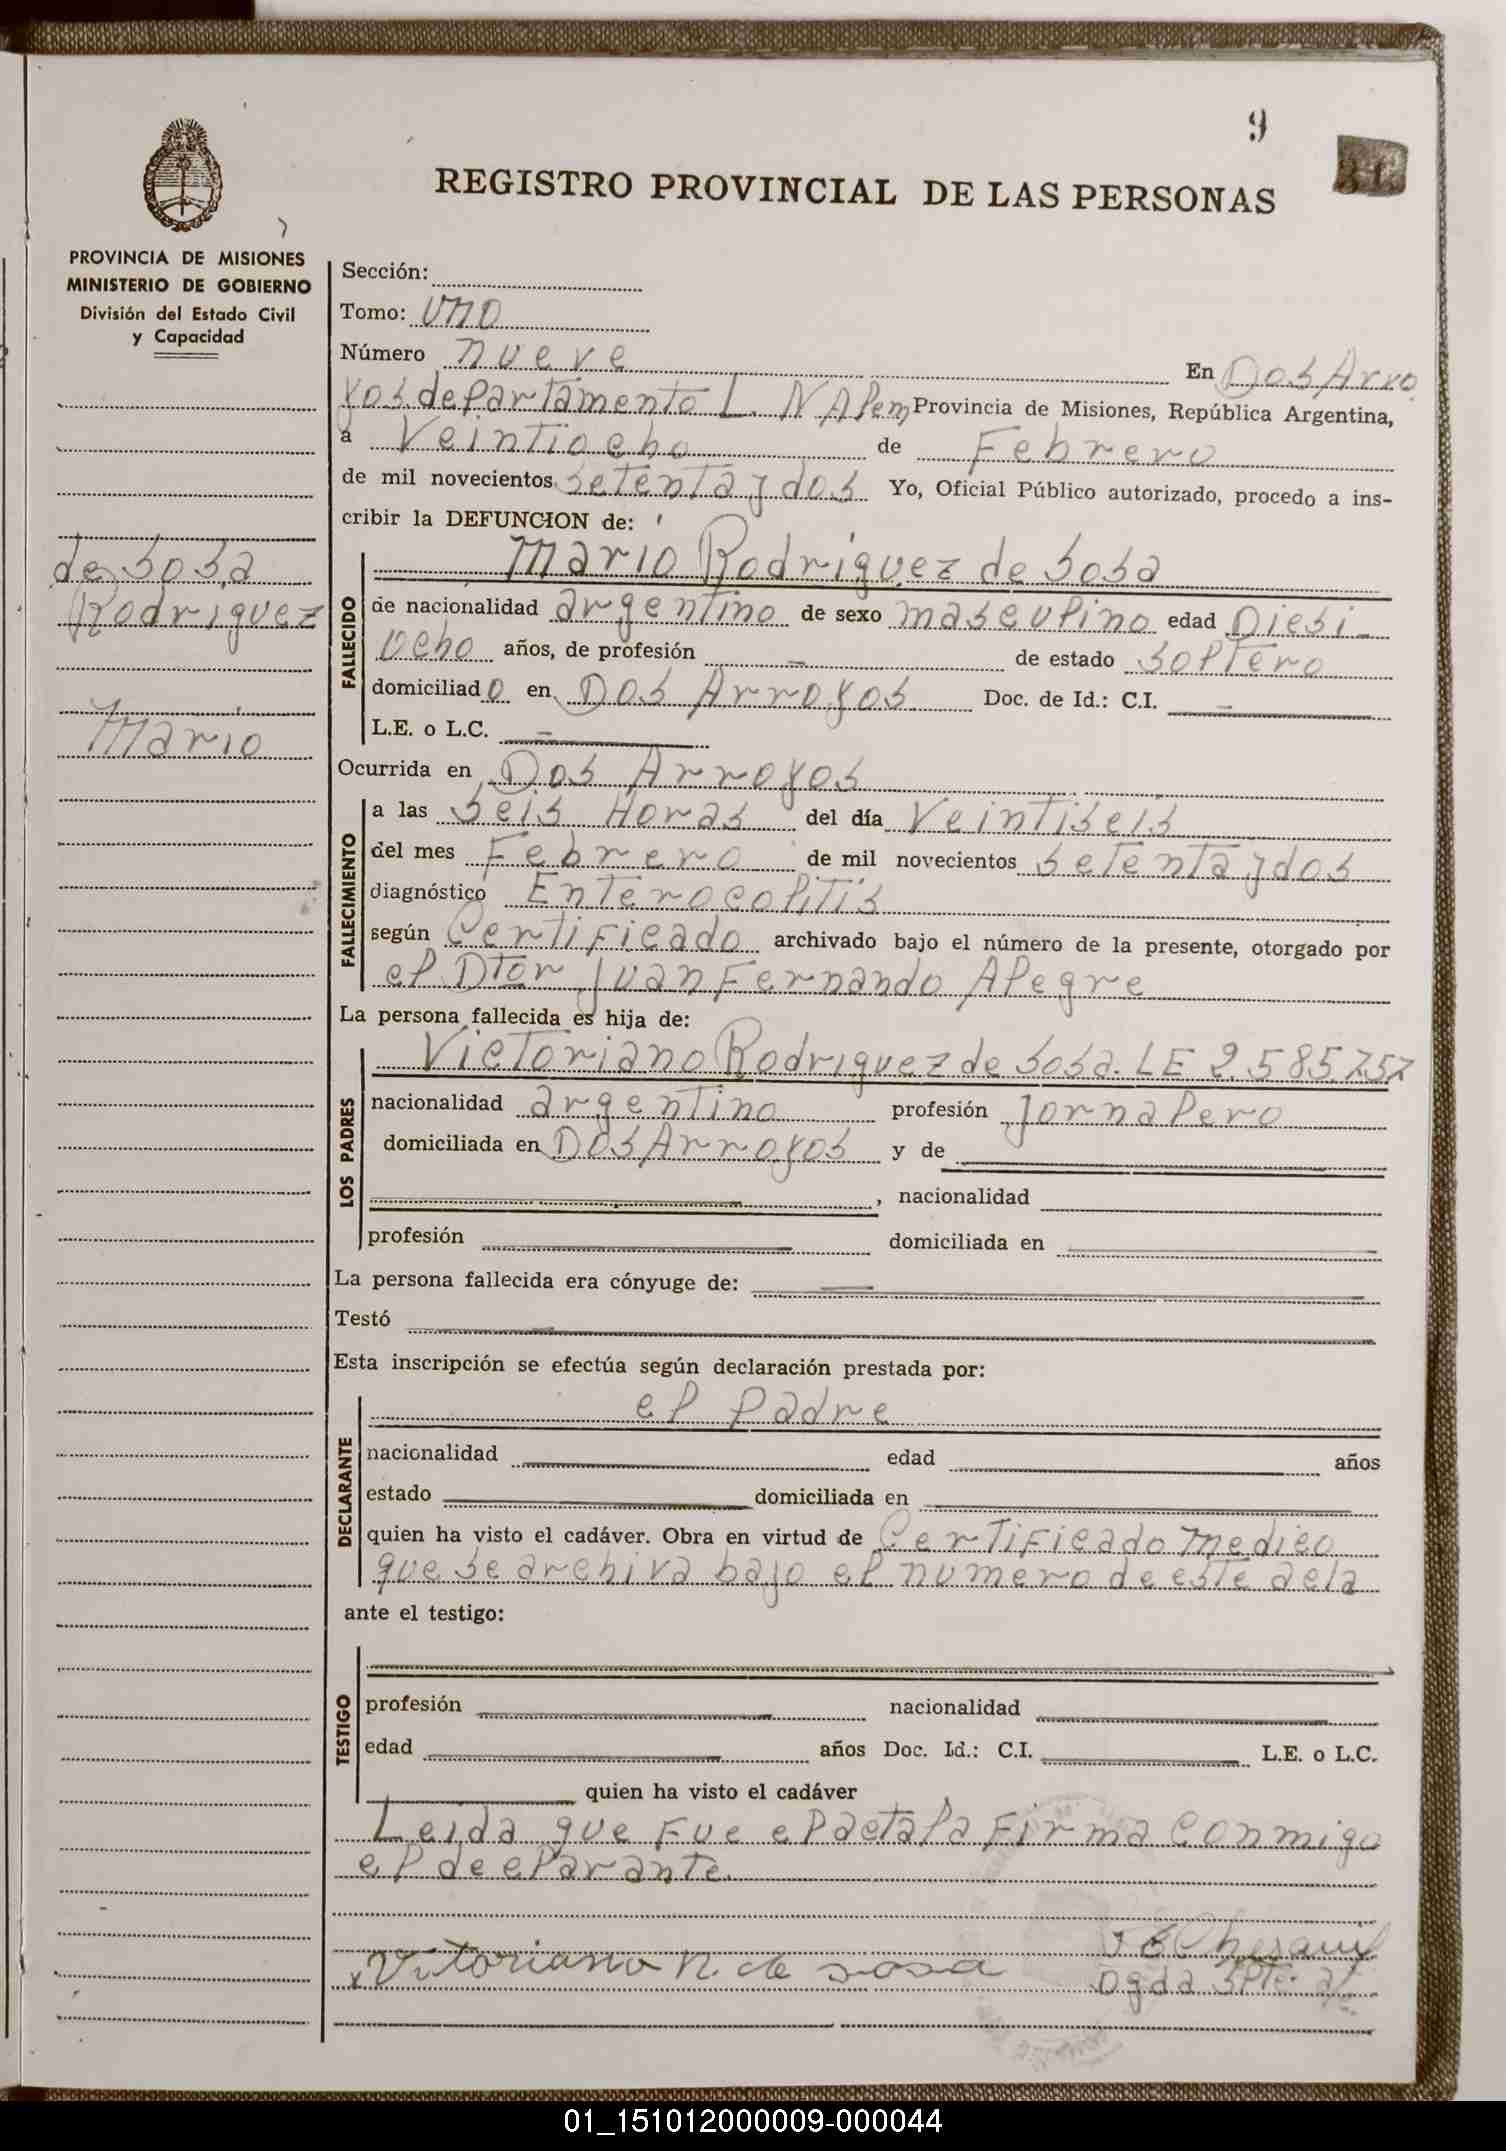 9
REGISTRO PROVINCIAL DE LAS PERSONAS
PROVINCIA DE MISIONES
MINISTERIO DE GOBIERNO
División del Estado Civil
y Capacidad
de Sosa
Rodriguez
Mario
Sección:
Tomo: uno
Número nueve En Dos Arro
yos departamento L. N Alem Provincia de Misiones, República Argentina,
a Veintiocho de Febrero
de mil novecientos setenta y dos Yo, Oficial Público autorizado, procedo a ins-
cribir la DEFUNCION de:
Mario Rodriguez de Sosa
FALLECIDO
de nacionalidad argentino de sexo masculino edad Diesi
ocho años, de profesión - de estado soltero
domiciliado en Dos Arroyos Doc. de Id.: C.I. -
L.E. o L.C. -
Ocurrida en Dos Arroyos
FALLECIMIENTO
a las seis Horas del día Veintiseis
del mes Febrero de mil novecientos setenta y dos
diagnóstico Enterocolitis
según Certificado archivado bajo el número de la presente, otorgado por
el Dtor Juan Fernando Alegre
La persona fallecida es hija de:
LOS PADRES
Victoriano Rodriguez de Sosa. LE 2.585.757
nacionalidad argentino profesión Jornalero
domiciliada en Dos Arroyos y de
, nacionalidad
profesión domiciliada en
La persona fallecida era cónyuge de:
Testó
Esta inscripción se efectúa según declaración prestada por:
DECLARANTE
el Padre
nacionalidad edad años
estado domiciliada en
quien ha visto el cadáver. Obra en virtud de Certificado medico
que se archiva bajo el numero de este acta
ante el testigo:
TESTIGO
profesión nacionalidad
edad años Doc. Id.: C.I. L.E. o L.C.
quien ha visto el cadáver
Leida que fue el acta la firma conmigo
el declarante.
Vitoriano R. de sosa
01_151012000009-000044